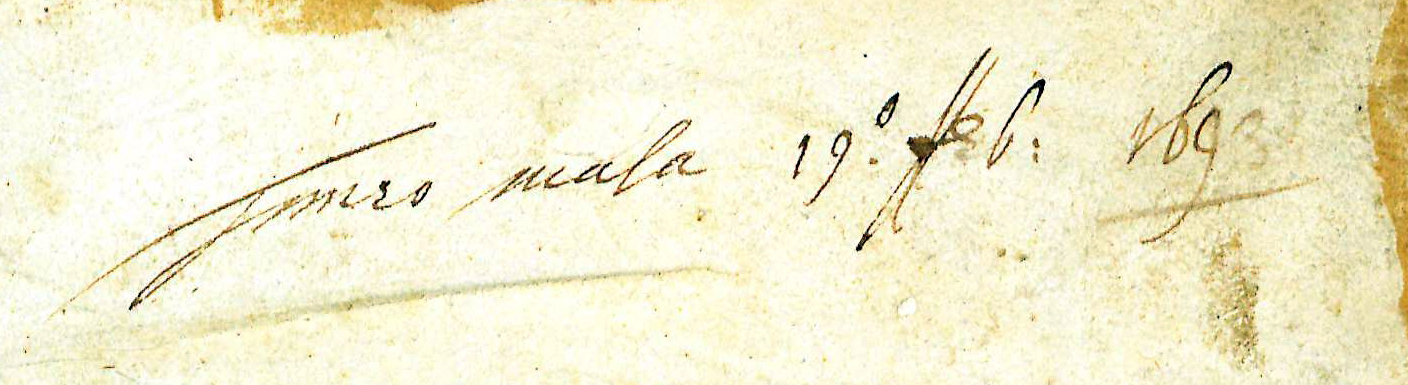 timeo mala 19.º feb: 1693